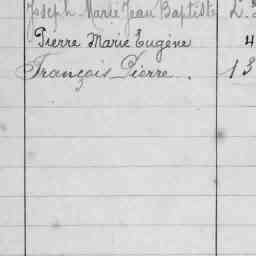 Joseph Marie Jean Baptiste 2.
Pierre Marie Eugène 4
François Pierre. 13